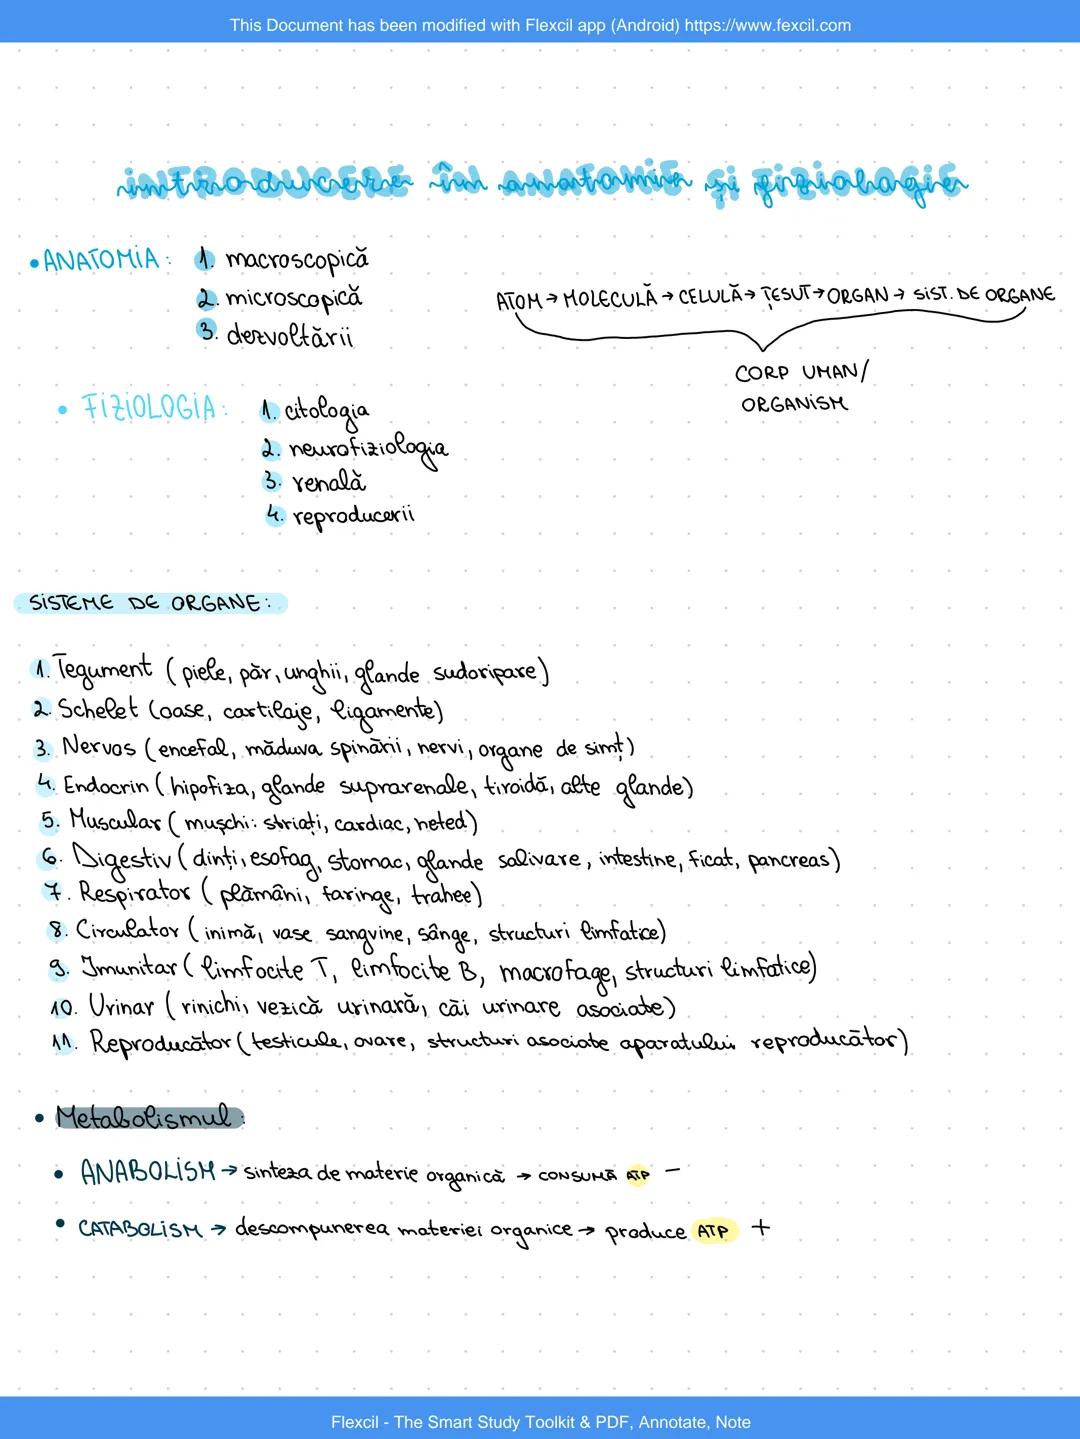 This Document has been modified with Flexcil app (Android) https://www.fexcil.com
introducere în anatomie și fiziologie
• ANATOMIA: 1. macroscopică
2. microscopică
3. dezvoltării
ATOM → MOLECULĂ → CELULĂ → ȚESUT → ORGAN → SIST. DE ORGANE
CORP UMAN/
ORGANISM
• FIZIOLOGIA: 1. citologia
2. neurofiziologia
3. renală
4. reproducerii
SISTEME DE ORGANE:
1. Tegument (piele, păr, unghii, glande sudoripare)
2. Schelet (oase, cartilaje, ligamente)
3. Nervos (encefal, măduva spinării, nervi, organe de simț)
4. Endocrin (hipofiza, glande suprarenale, tiroidă, alte glande)
5. Muscular (mușchi: striați, cardiac, neted)
6. Digestiv (dinți, esofag, stomac, glande salivare, intestine, ficat, pancreas)
7. Respirator (plămâni, faringe, trahee)
8. Circulator (inimă, vase sangvine, sânge, structuri limfatice)
9. Imunitar (limfocite T, limfocite B, macrofage, structuri limfatice)
10. Urinar (rinichi, vezică urinară, căi urinare asociate)
11. Reproducător (testicule, ovare, structuri asociate aparatului reproducător)
• Metabolismul:
• ANABOLISM → sinteza de materie organică → CONSUMĂ ATP −
• CATABOLISM → descompunerea materiei organice → produce ATP +
Flexcil - The Smart Study Toolkit & PDF, Annotate, Note